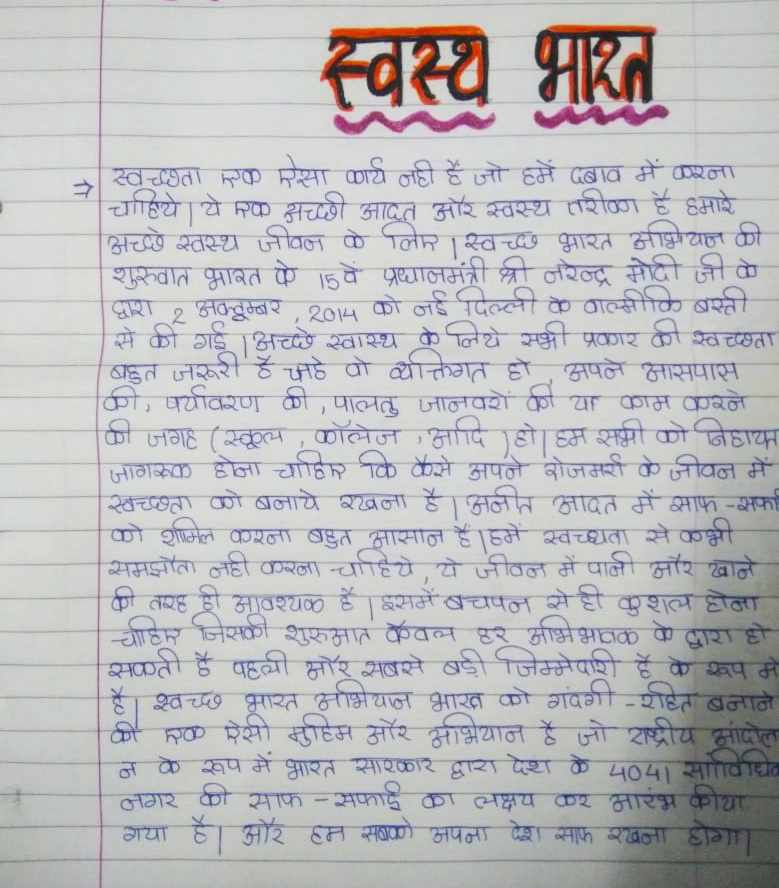 स्वस्थ भारत
⇒ स्वच्छता एक ऐसा कार्य नही है जो हमें दबाव में करना
चाहिये। ये एक अच्छी आदत और स्वस्थ तरीका है हमारे
अच्छे स्वस्थ जीवन के लिए। स्वच्छ भारत अभियान की
शुरुवात भारत के 15वें प्रधानमंत्री श्री नरेन्द्र मोदी जी के
द्वारा 2 अक्टूम्बर, 2014 को नई दिल्ली के वाल्मीकि बस्ती
से की गई। अच्छे स्वास्थ के लिये सभी प्रकार की स्वच्छता
बहुत जरूरी है चाहे वो व्यक्तिगत हो, अपने आसपास
की, पर्यावरण की, पालतु जानवरों की या काम करने
की जगह (स्कूल, कॉलेज, आदि) हो। हम सभी को निहायत
जागरूक होना चाहिए कि कैसे अपने रोजमर्रा के जीवन में
स्वच्छता को बनाये रखना है। अनीत आदत में साफ-सफा
को शामिल करना बहुत आसान है। हमें स्वच्छता से कभी
समझौता नही करना चाहिये, ये जीवन में पानी और खाने
की तरह ही आवश्यक है। इसमें बचपन से ही कुशल होना
चाहिए जिसकी शुरुआत केवल हर अभिभावक के द्वारा हो
सकती है पहली और सबसे बड़ी जिम्मेवारी है के रूप में
है। स्वच्छ भारत अभियान भारत को गंदगी-रहित बनाने
की एक ऐसी मुहिम और अभियान है जो राष्ट्रीय आंदोल
न के रूप में भारत सारकार द्वारा देश के 4041 सांविधिक
नगर की साफ-सफाई का लक्षय कर आरंभ कीया
गया है। और हम सबको अपना देश साफ रखना होगा।